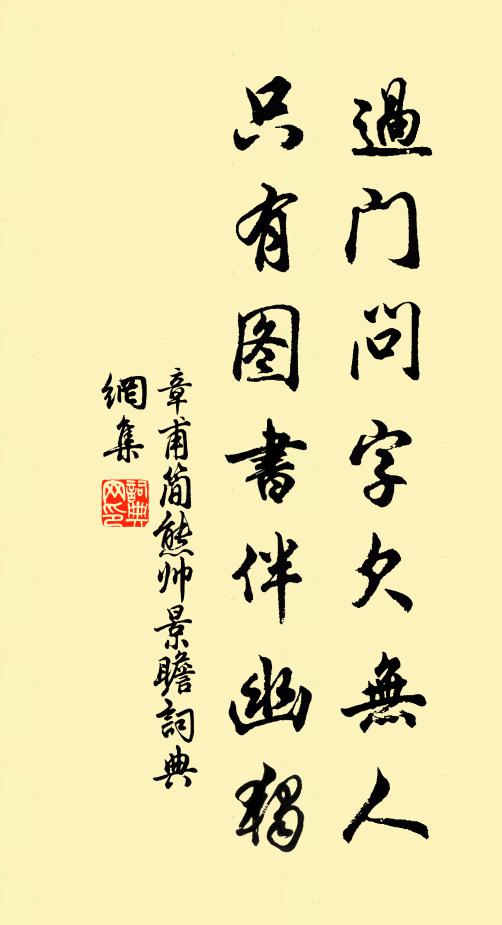 過门问字久無人
只有图書伴幽独
章甫简熊帅景瞻詞典
網集
詞典網印